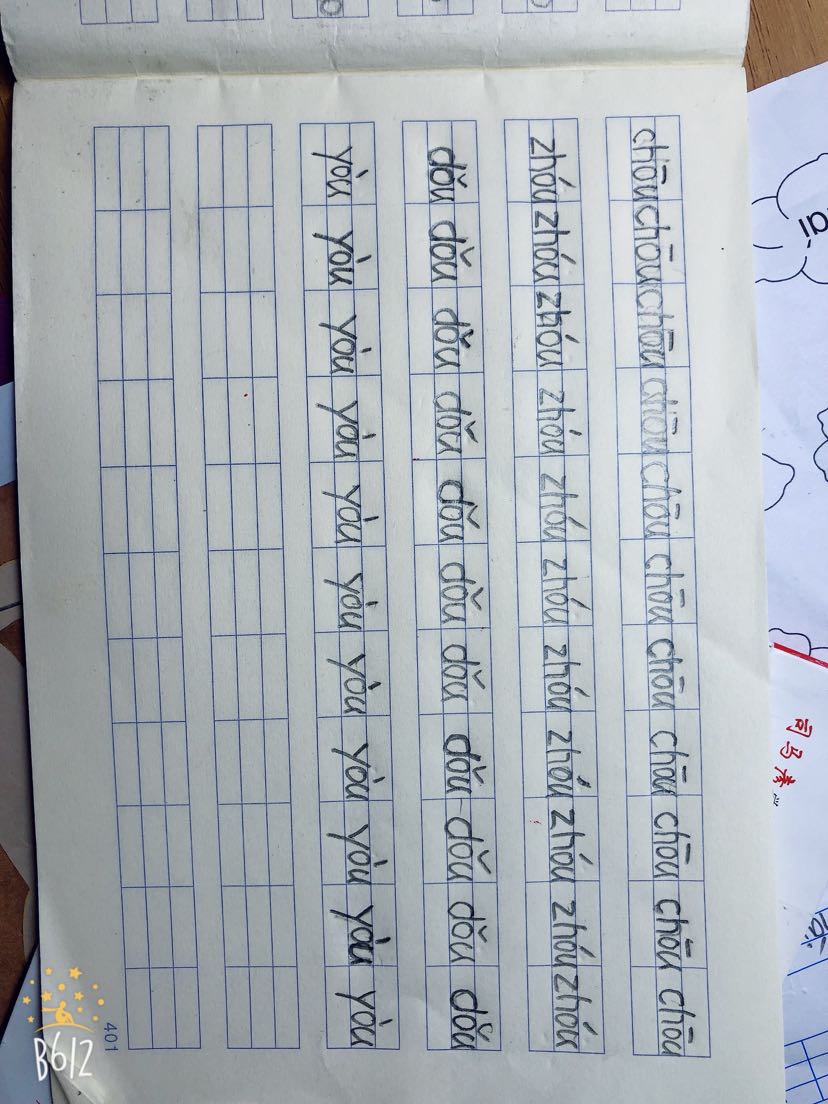 chōu chōu chōu chōu chōu chōu chōu chōu chōu chōu chōu
zhóu zhóu zhóu zhóu zhóu zhóu zhóu zhóu zhóu zhóu zhóu
dǒu dǒu dǒu dǒu dǒu dǒu dǒu dǒu dǒu dǒu dǒu
yòu yòu yòu yòu yòu yòu yòu yòu yòu yòu yòu
401
司马
B612